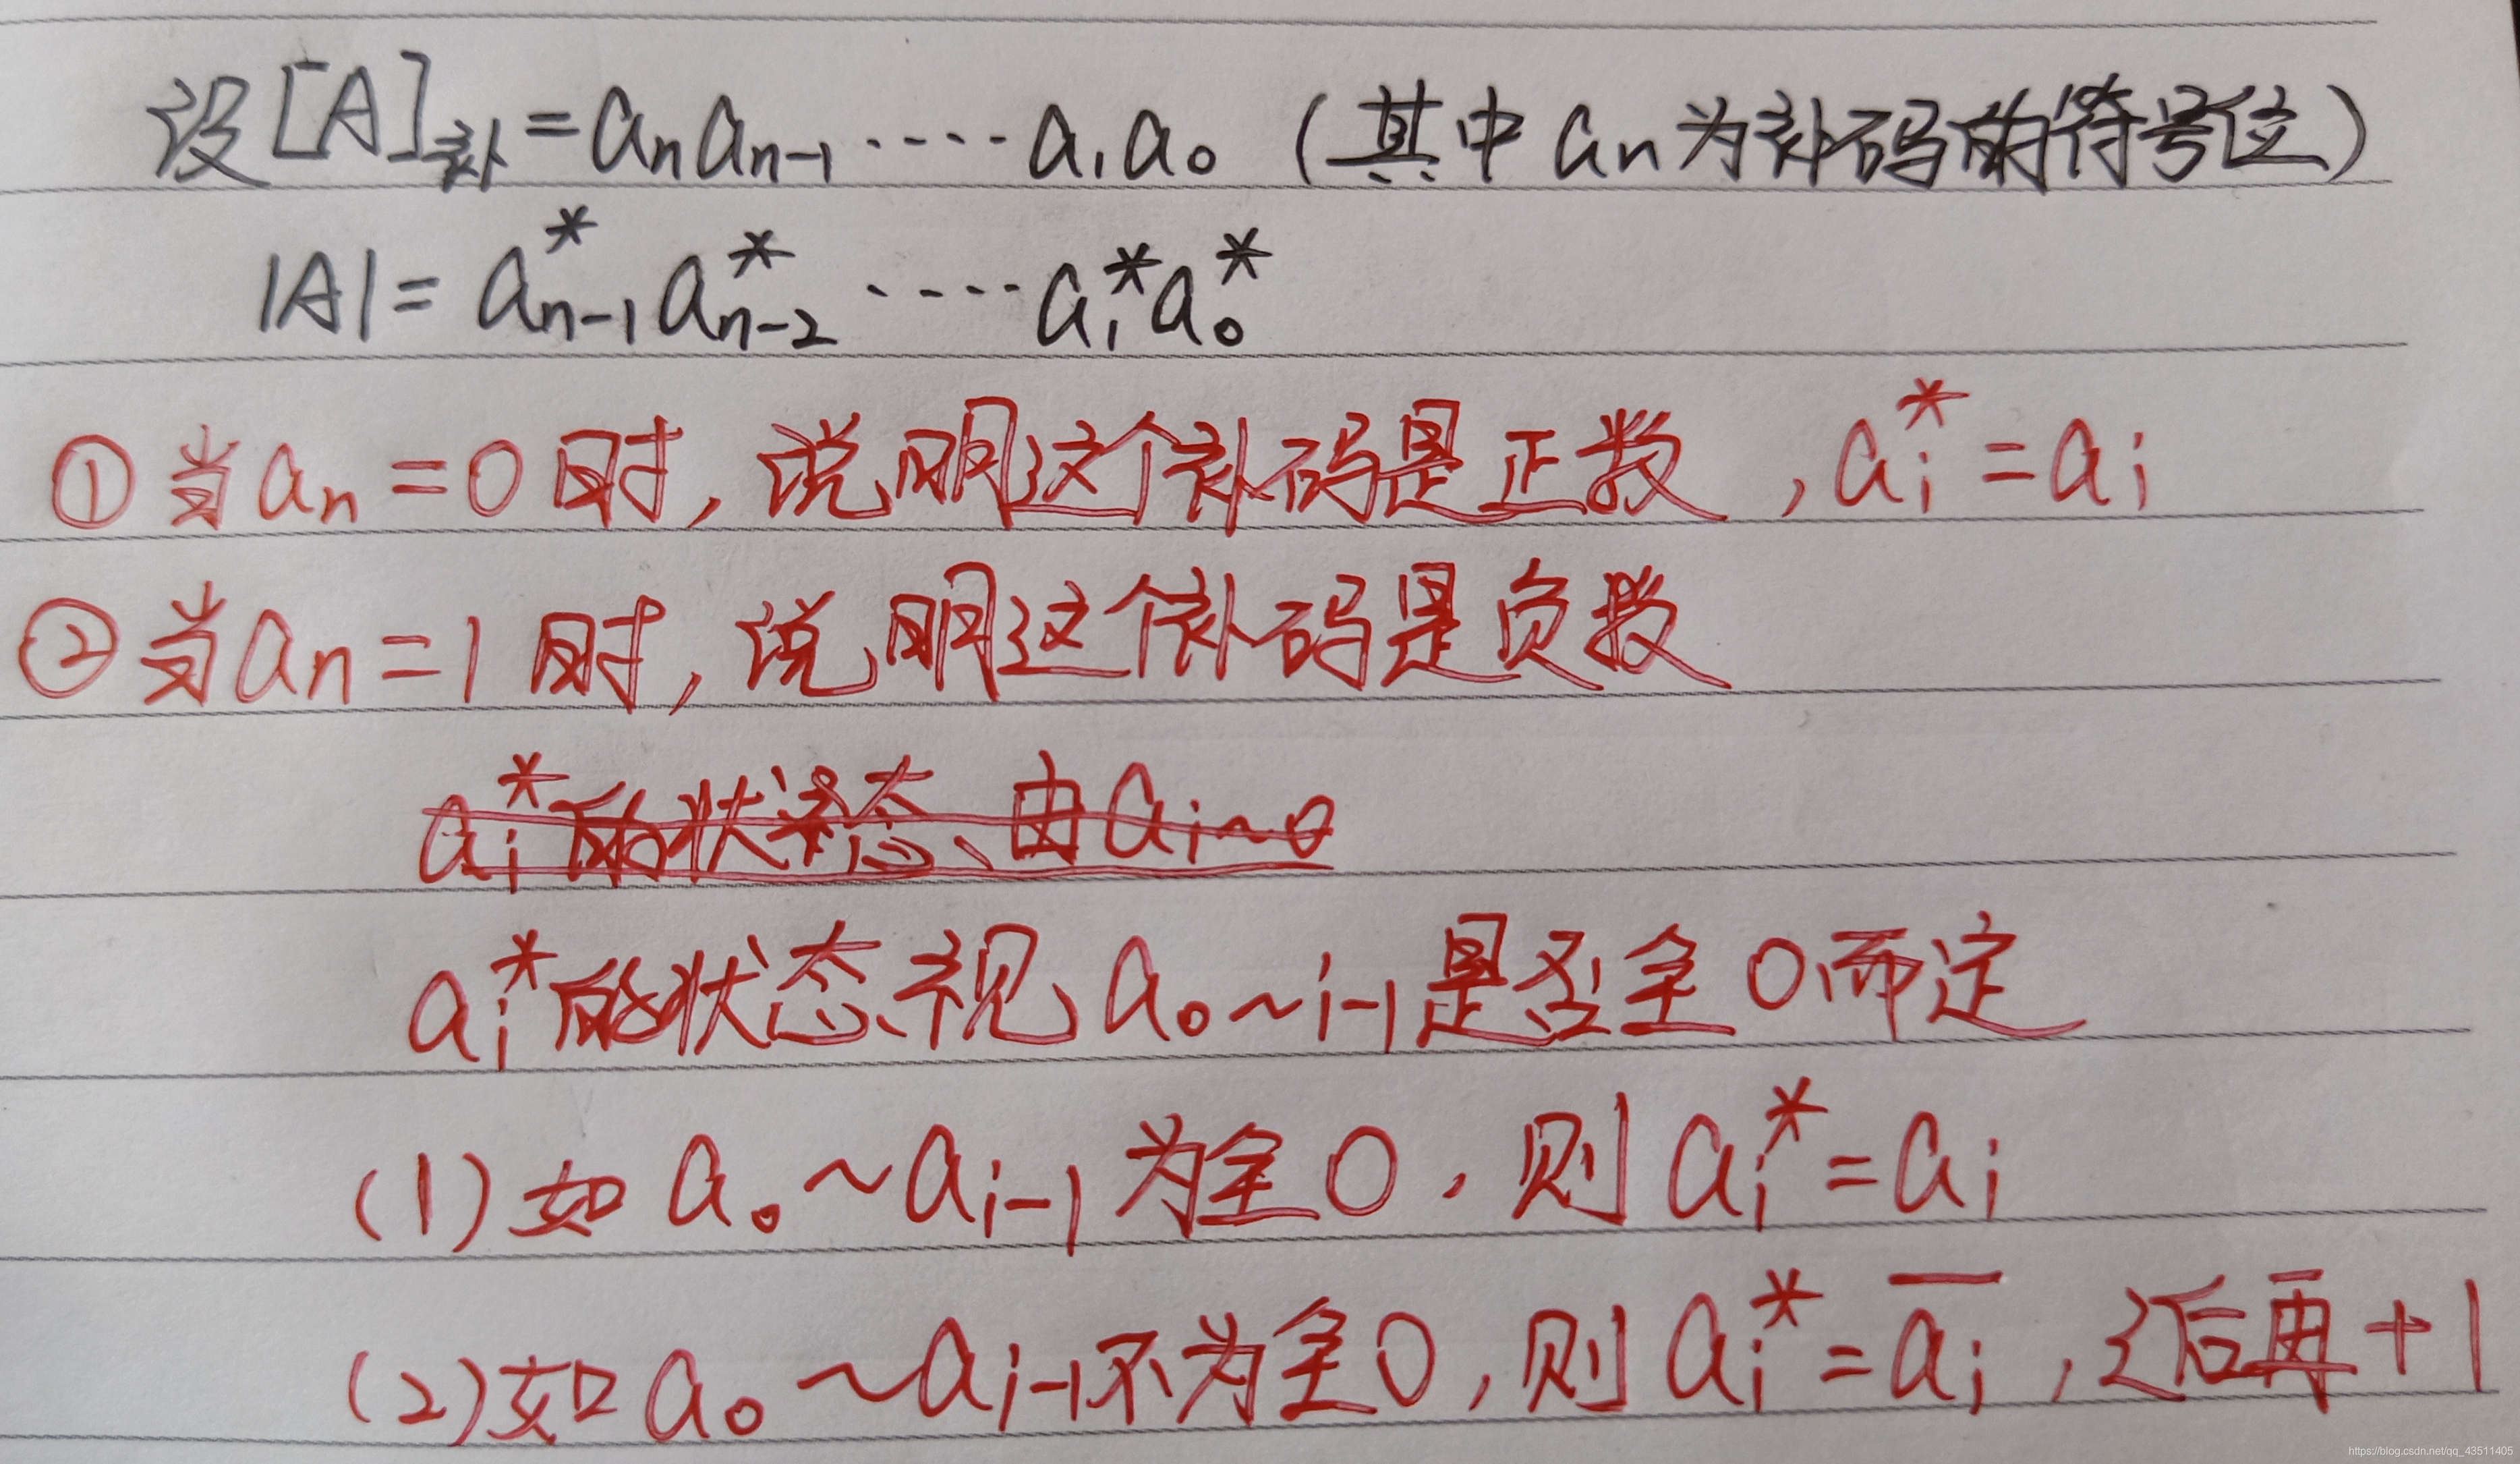 设[A]补=aₙaₙ₋₁‥‥‥a₁a₀ (其中aₙ为补码的符号位)
|A|=a*ₙ₋₁a*ₙ₋₂‥‥‥a₁*a₀*
①当aₙ=0时,说明这个补码是正数,aᵢ*=aᵢ
②当aₙ=1时,说明这个补码是负数
aᵢ*的状态由aᵢ~₀
aᵢ*的状态视a₀~ᵢ₋₁是否全0而定
(1)如a₀~aᵢ₋₁为全0,则aᵢ*=aᵢ
(2)如a₀~aᵢ₋₁不为全0,则aᵢ*=a̅ᵢ,之后再+1
https://blog.csdn.net/qq_43511405